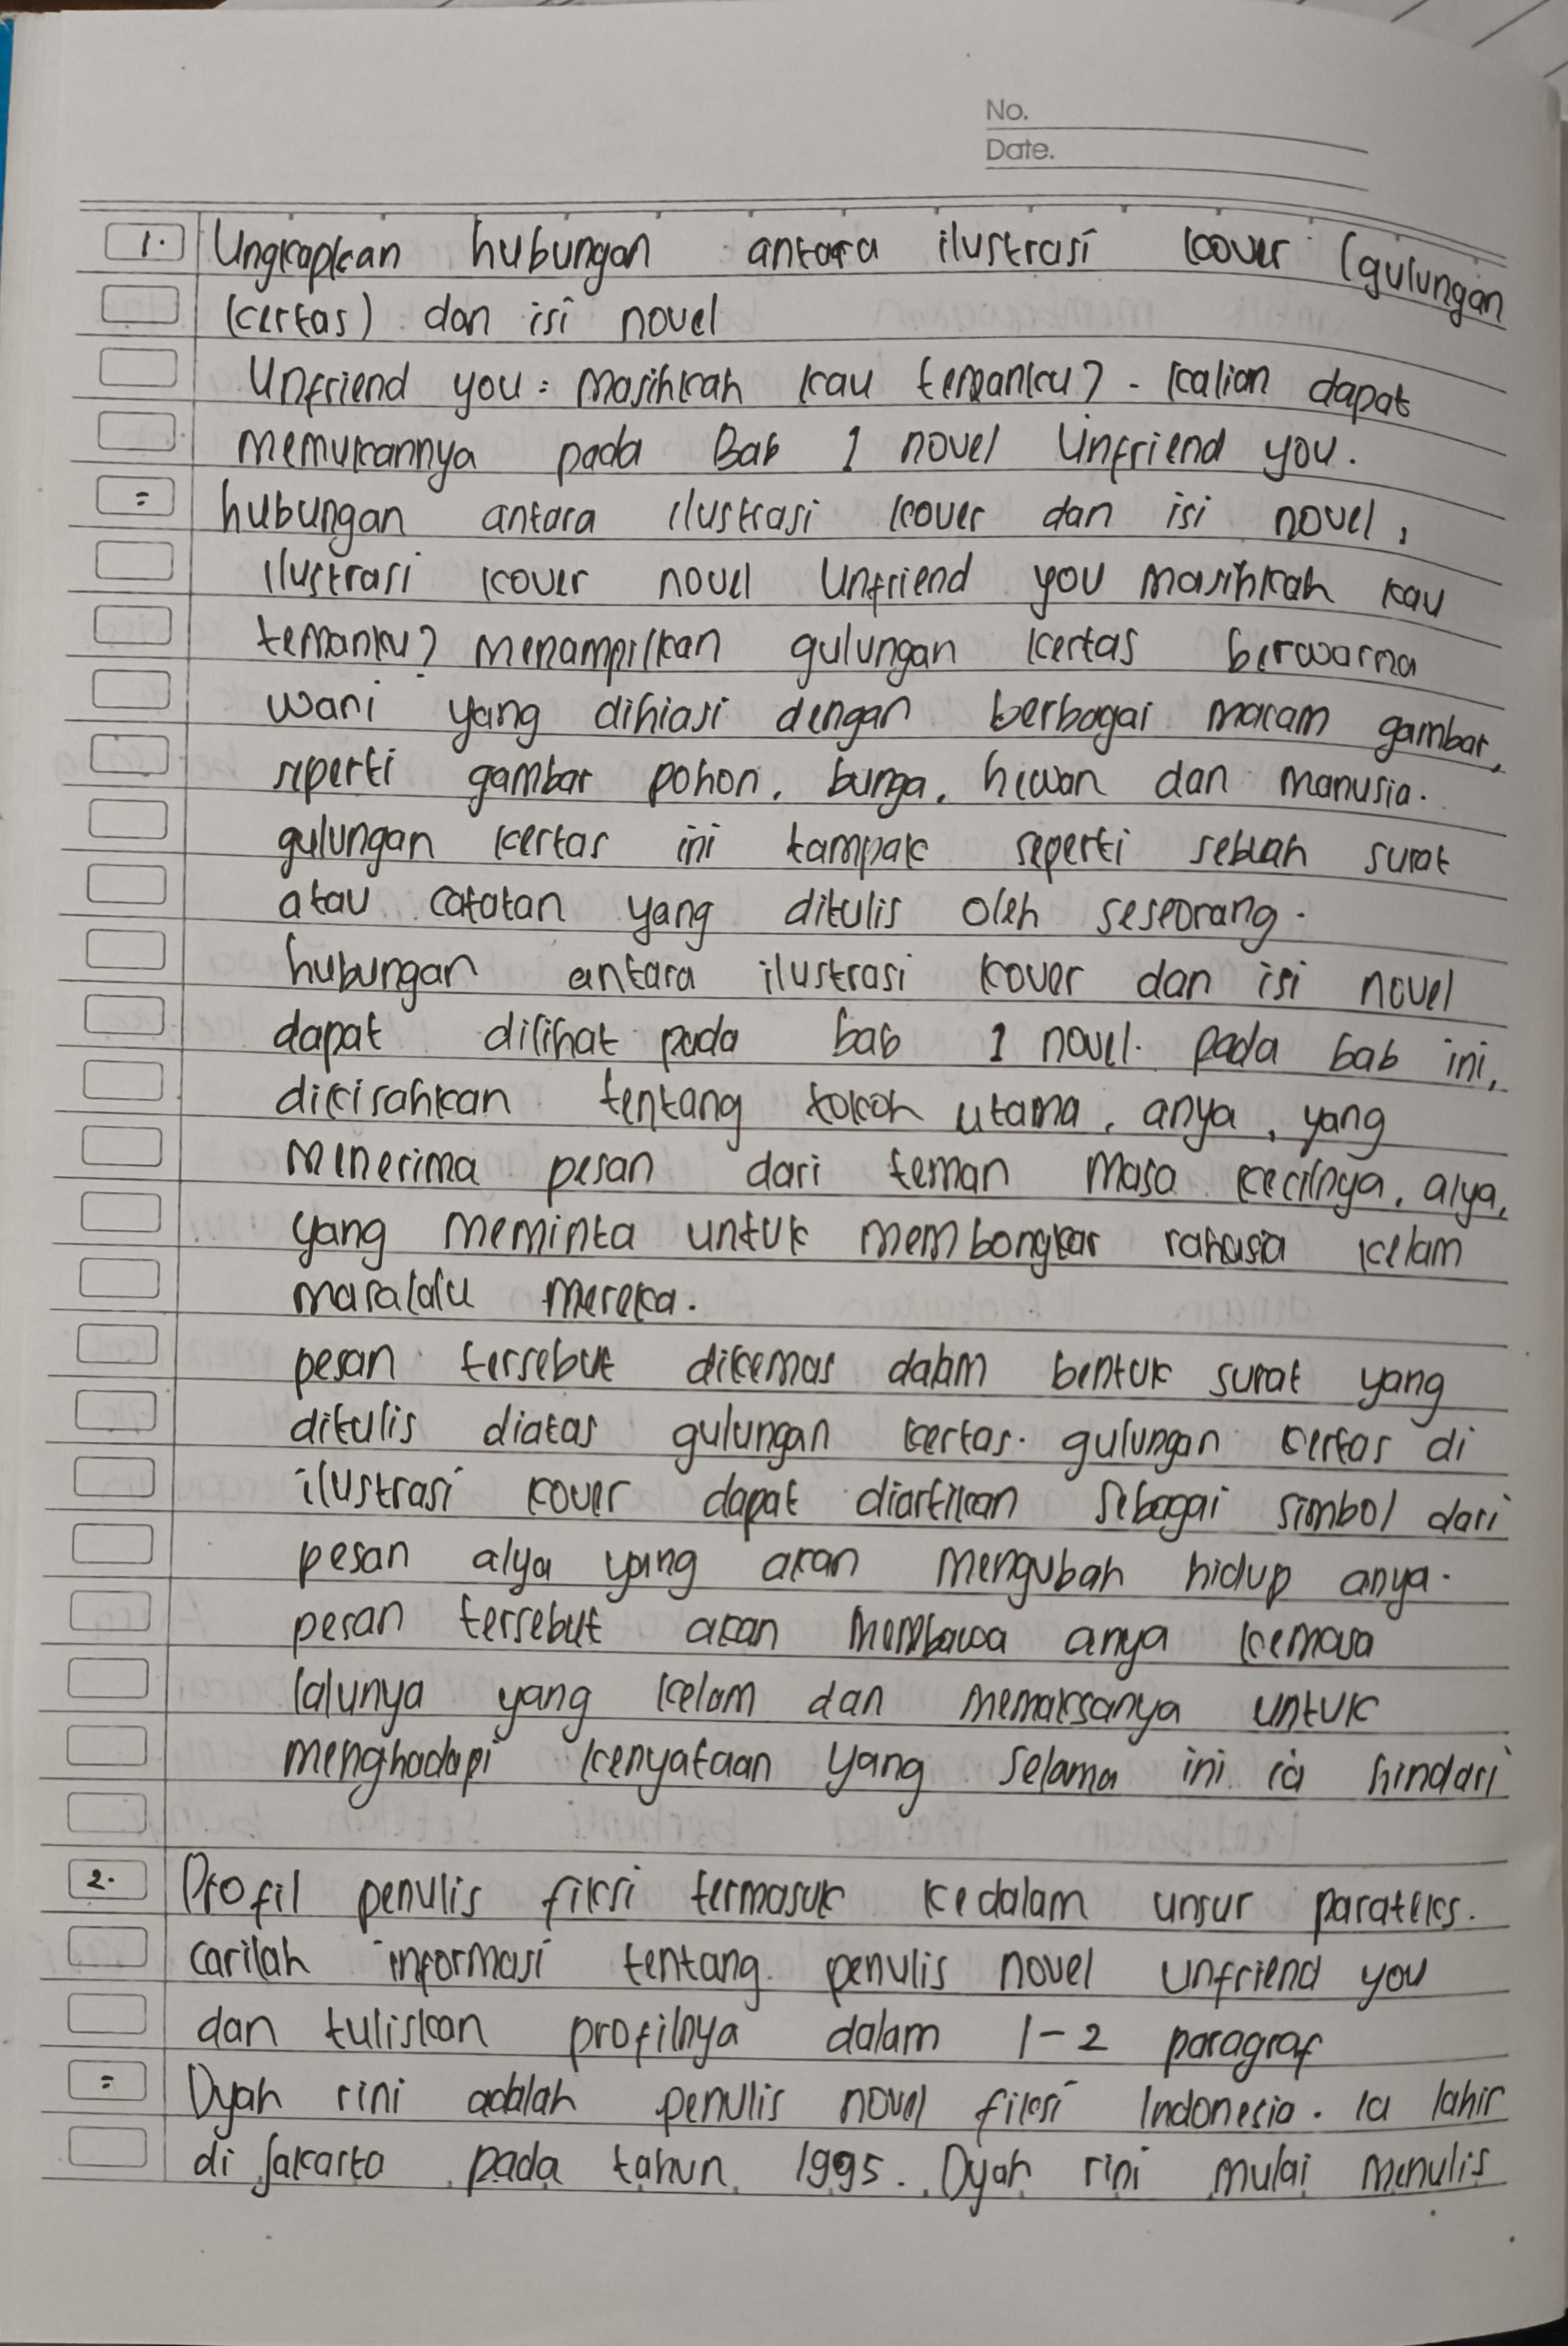 No.
Date.
1. Ungkapkan hubungan antara ilustrasi kover (gulungan
kertas) dan isi novel
Unfriend you : Masihkah kau temanku? - Kalian dapat
memukannya pada Bab 1 novel Unfriend you.
= hubungan antara ilustrasi kover dan isi novel,
ilustrasi kover novel Unfriend you masihkah kau
temanku? menampilkan gulungan kertas berwarna
wani yang dihiasi dengan berbagai macam gambar,
seperti gambar pohon, bunga, hewan dan manusia.
gulungan kertas ini tampak seperti sebuah surat
atau catatan yang ditulis oleh seseorang.
hubungan antara ilustrasi kover dan isi novel
dapat dilihat pada bab 1 novel. pada bab ini,
dikisahkan tentang tokoh utama, anya, yang
menerima pesan dari teman masa kecilnya, alya,
yang meminta untuk membongkar rahasia kelam
masalalu mereka.
pesan tersebut dikemas dalam bentuk surat yang
ditulis diatas gulungan kertas. gulungan kertas di
ilustrasi kover dapat diartikan sebagai simbol dari
pesan alya yang akan mengubah hidup anya.
pesan tersebut akan membawa anya kemasa
lalunya yang kelam dan memaksanya untuk
menghadapi kenyataan yang selama ini ia hindari
2. Profil penulis fiksi termasuk kedalam unsur parateks.
carilah informasi tentang penulis novel unfriend you
dan tuliskan profilnya dalam 1-2 paragraf
= Dyah rini adalah penulis novel fiksi Indonesia. Ia lahir
di Jakarta pada tahun 1995. Dyah rini mulai menulis